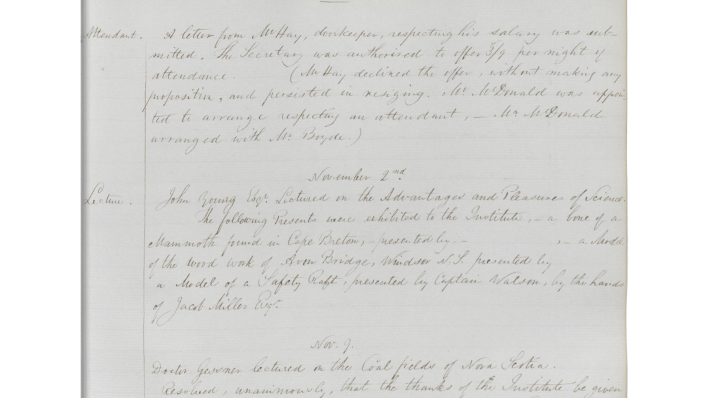 Attendant. A letter from Mr Hay, doorkeeper, respecting his salary was sub-
mitted. The Secretary was authorized to offer 3/9 per night of
attendance. (Mr Hay declined the offer, without making any
proposition, and persisted in resigning. Mr. McDonald was appoin
ted to arrange respecting an attendant, — Mr McDonald
arranged with Mr. Boyde.)
November 2nd
Lecture. John Young Esqr. Lectured on the Advantages and Pleasures of Science.
The following Presents were exhibited to the Institute, — a bone of a
Mammoth found in Cape Breton, — presented by — — a Model
of the wood work of Avon Bridge, Windsor N.S. presented by
a Model of a Safety Raft, presented by Captain Watson, by the hands
of Jacob Miller Esqr.
Nov. 9.
Doctor Gessner lectured on the Coal fields of Nova Scotia.
Resolved, unanimously, that the thanks of the Institute be given